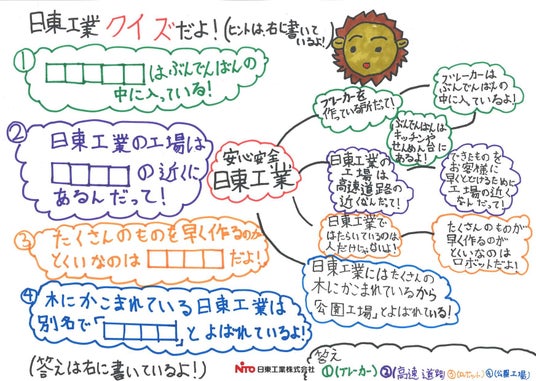 日東工業クイズだよ!(ヒントは、右に書いて
いるよ!)
①□□□□□はぶんでんばんの
中に入っている!
②日東工業の工場は
□□□□の近くに
あるんだって!
③たくさんのものを早く作るのが
とくいなのは□□□□だよ!
④木にかこまれている日東工業は
別名で「□□□□」とよばれているよ!
(答えは右に書いているよ!)
安心安全!
日東工業
ブレーカーを
作っている所だて!
ブレーカーは
ぶんでんばんの
中に入っているよ!
ぶんでんばんは
キッチンや
せんめん台に
あるよ!
日東工業の
工場は
高速道路の
近くなんだって!
できたものを
お客様に
早くとどけるために
工場の近く
なんだって!
日東工業で
はたらいているのは
人だけじゃないよ!
たくさんのものが
早く作るのが
とくいなのは
ロボットだよ!
日東工業にはたくさんの
木にかこまれているから
「公園工場」とよばれているよ!
NITO 日東工業株式会社
答え
①(ブレーカー) ②(高速道路) ③(ロボット) ④(公園工場)